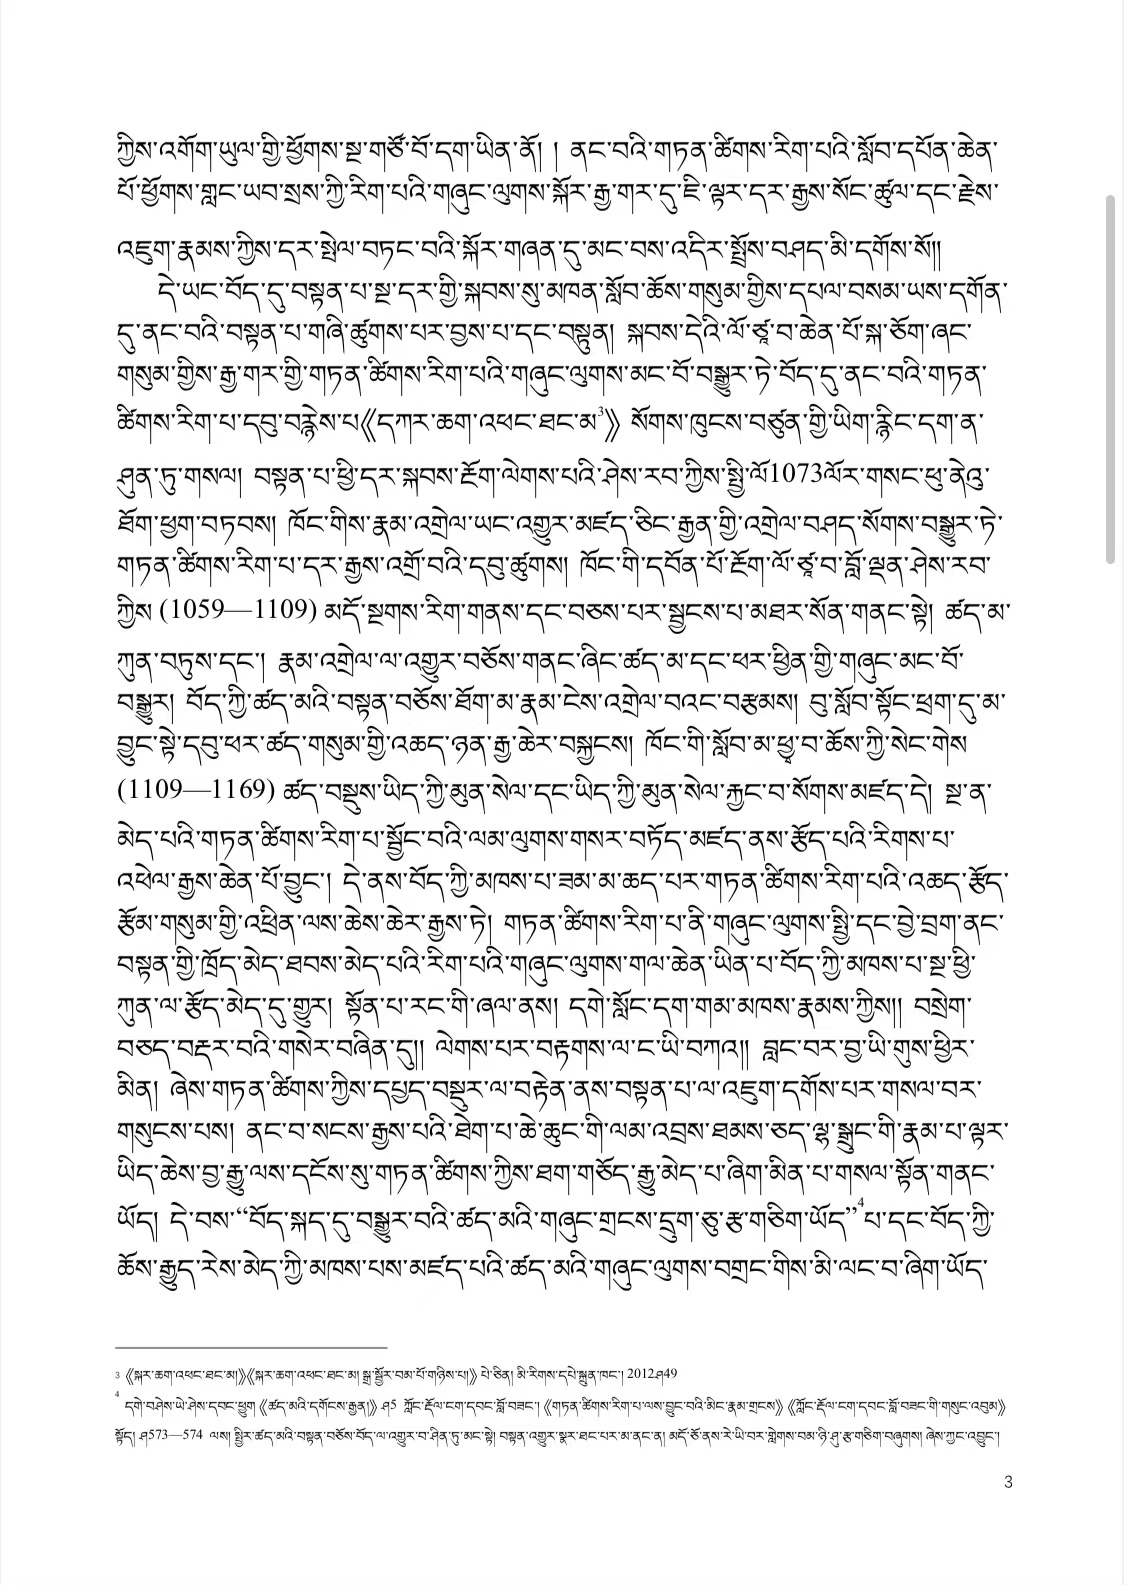 ཀྱིས་འགོག་ཡུལ་གྱི་ཕྱོགས་སྔ་གཙོ་བོ་དག་ཡིན་ནོ། ། ནང་བའི་གཏན་ཚིགས་རིག་པའི་སློབ་དཔོན་ཆེན་
པོ་ཕྱོགས་གླང་ཡབ་སྲས་ཀྱི་རིག་པའི་གཞུང་ལུགས་སྐོར་རྒྱ་གར་དུ་ཇི་ལྟར་དར་རྒྱས་སོང་ཚུལ་དང་རྗེས་
འཇུག་རྣམས་ཀྱིས་དར་སྤེལ་བཏང་བའི་སྐོར་གཞན་དུ་མང་བས་འདིར་སྤྲོས་བཤད་མི་དགོས་སོ།།
དེ་ཡང་བོད་དུ་བསྟན་པ་སྔ་དར་གྱི་སྐབས་སུ་མཁན་སློབ་ཆོས་གསུམ་གྱིས་དཔལ་བསམ་ཡས་དགོན་
དུ་ནང་བའི་བསྟན་པ་གཞི་ཚུགས་པར་བྱས་པ་དང་བསྟུན། སྐབས་དེའི་ལོ་ཙཱ་བ་ཆེན་པོ་སྐ་ཅོག་ཞང་
གསུམ་གྱིས་རྒྱ་གར་གྱི་གཏན་ཚིགས་རིག་པའི་གཞུང་ལུགས་མང་བོ་བསྒྱུར་ཏེ་བོད་དུ་ནང་བའི་གཏན་
ཚིགས་རིག་པ་དབུ་བརྙེས་པ《དཀར་ཆག་འཕང་ཐང་མ³》 སོགས་ཁུངས་བཙུན་གྱི་ཡིག་རྙིང་དག་ན་
ཤུན་ཏུ་གསལ། བསྟན་པ་ཕྱི་དར་སྐབས་རྔོག་ལེགས་པའི་ཤེས་རབ་ཀྱིས་སྤྱི་ལོ1073ལོར་གསང་ཕུ་ནེའུ་
ཐོག་ཕྱག་བཏབས། ཁོང་གིས་རྣམ་འགྲེལ་ཡང་འགྱུར་མཛད་ཅིང་རྒྱན་གྱི་འགྲེལ་བཤད་སོགས་བསྒྱུར་ཏེ་
གཏན་ཚིགས་རིག་པ་དར་རྒྱས་འགྲོ་བའི་དབུ་ཚུགས། ཁོང་གི་དབོན་པོ་རྔོག་ལོ་ཙཱ་བ་བློ་ལྡན་ཤེས་རབ་
ཀྱིས (1059—1109) མདོ་སྔགས་རིག་གནས་དང་བཅས་པར་སྦྱངས་པ་མཐར་སོན་གནང་སྟེ། ཚད་མ་
ཀུན་བཏུས་དང་། རྣམ་འགྲེལ་ལ་འགྱུར་བཅོས་གནང་ཞིང་ཚད་མ་དང་ཕར་ཕྱིན་གྱི་གཞུང་མང་བོ་
བསྒྱུར། བོད་ཀྱི་ཚད་མའི་བསྟན་བཅོས་ཐོག་མ་རྣམ་ངེས་འགྲེལ་བའང་བརྩམས། བུ་སློབ་སྟོང་ཕྲག་དུ་མ་
བྱུང་སྟེ་དབུ་ཕར་ཚད་གསུམ་གྱི་འཆད་ཉན་རྒྱ་ཆེར་བསྐྱངས། ཁོང་གི་སློབ་མ་ཕྱྭ་བ་ཆོས་ཀྱི་སེང་གེས
(1109—1169) ཚད་བསྡུས་ཡིད་ཀྱི་མུན་སེལ་དང་ཡིད་ཀྱི་མུན་སེལ་རྐྱང་བ་སོགས་མཛད་དེ། སྔ་ན་
མེད་པའི་གཏན་ཚིགས་རིག་པ་སྦྱོང་བའི་ལམ་ལུགས་གསར་བཏོད་མཛད་ནས་རྩོད་པའི་རིགས་པ་
འཕེལ་རྒྱས་ཆེན་པོ་བྱུང་། དེ་ནས་བོད་ཀྱི་མཁས་པ་ཟམ་མ་ཆད་པར་གཏན་ཚིགས་རིག་པའི་འཆད་རྩོད་
རྩོམ་གསུམ་གྱི་འཕྲིན་ལས་ཆེས་ཆེར་རྒྱས་ཏེ། གཏན་ཚིགས་རིག་པ་ནི་གཞུང་ལུགས་སྤྱི་དང་བྱེ་བྲག་ནང་
བསྟན་གྱི་ཁྲོད་མེད་ཐབས་མེད་པའི་རིག་པའི་གཞུང་ལུགས་གལ་ཆེན་ཡིན་པ་བོད་ཀྱི་མཁས་པ་སྔ་ཕྱི་
ཀུན་ལ་རྩོད་མེད་དུ་གྱུར། སྟོན་པ་རང་གི་ཞལ་ནས། དགེ་སློང་དག་གམ་མཁས་རྣམས་ཀྱིས།། བསྲེག་
བཅད་བརྡར་བའི་གསེར་བཞིན་དུ།། ལེགས་པར་བརྟགས་ལ་ང་ཡི་བཀའ།། བླང་བར་བྱ་ཡི་གུས་ཕྱིར་
མིན། ཞེས་གཏན་ཚིགས་ཀྱིས་དཔྱད་བསྡུར་ལ་བརྟེན་ནས་བསྟན་པ་ལ་འཇུག་དགོས་པར་གསལ་བར་
གསུངས་པས། ནང་བ་སངས་རྒྱས་པའི་ཐེག་པ་ཆེ་ཆུང་གི་ལམ་འབྲས་ཐམས་ཅད་ལྷ་སྒྲུང་གི་རྣམ་པ་ལྟར་
ཡིད་ཆེས་བྱ་རྒྱུ་ལས་དངོས་སུ་གཏན་ཚིགས་ཀྱིས་ཐག་གཅོད་རྒྱུ་མེད་པ་ཞིག་མིན་པ་གསལ་སྟོན་གནང་
ཡོད། དེ་བས་“བོད་སྐད་དུ་བསྒྱུར་བའི་ཚད་མའི་གཞུང་གྲངས་དྲུག་ཅུ་རྩ་གཅིག་ཡོད”⁴པ་དང་བོད་ཀྱི་
ཆོས་རྒྱུད་རིས་མེད་ཀྱི་མཁས་པས་མཛད་པའི་ཚད་མའི་གཞུང་ལུགས་བགྲང་གིས་མི་ལང་བ་ཞིག་ཡོད་
3 《སྐར་ཆག་འཕང་ཐང་མ།》《སྐར་ཆག་འཕང་ཐང་མ། སྒྲ་སྦྱོར་བམ་པོ་གཉིས་པ།》 པེ་ཅིན། མི་རིགས་དཔེ་སྐྲུན་ཁང་། 2012ཤ49
4 དགེ་བཤེས་ཡེ་ཤེས་དབང་ཕྱུག《ཚད་མའི་དགོངས་རྒྱན།》 ཤ5 ཀློང་རྡོལ་ངག་དབང་བློ་བཟང་། 《གཏན་ཚིགས་རིག་པ་ལས་བྱུང་བའི་མིང་རྣམ་གྲངས》《ཀློང་རྡོལ་ངག་དབང་བློ་བཟང་གི་གསུང་འབུམ》
སྟོད། ཤ573—574 ལས། སྤྱིར་ཚད་མའི་བསྟན་བཅོས་བོད་ལ་འགྱུར་བ་ཤིན་ཏུ་མང་སྟེ། བསྟན་འགྱུར་སྣར་ཐང་པར་མ་ནང་ན། མདོ་ཅོ་ནས་རེ་ཡི་བར་གླེགས་བམ་ཉི་ཤུ་རྩ་གཅིག་བཞུགས། ཞེས་ཀྱང་འབྱུང་།
3